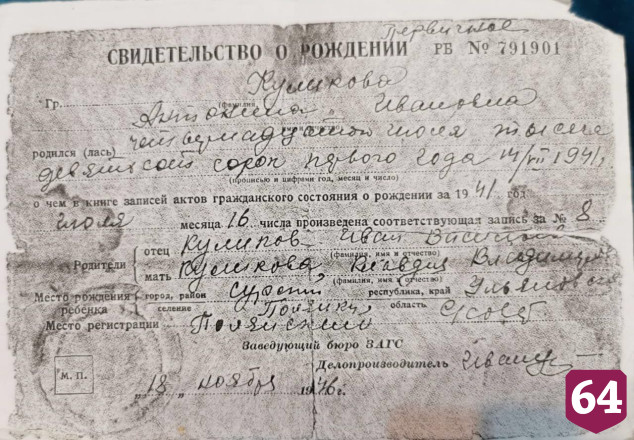 Первичное
СВИДЕТЕЛЬСТВО О РОЖДЕНИИ РБ № 791901
Куликова
Гр. (фамилия)
Антонина Ивановна
четырнадцатого июля тысяча
родился (лась)
девятьсот сорок первого года 14/VII 1941,
(прописью и цифрами год, месяц и число)
о чем в книге записей актов гражданского состояния о рождении за 1941 год
июля месяца 16 числа произведена соответствующая запись за № 8
отец Куликов Иван
(фамилия, имя и отчество)
Родители
мать Куликова Клавдия
(фамилия, имя и отчество)
Место рождения ребенка город, район республика, край
селение область
Место регистрации
Заведующий бюро ЗАГС
Делопроизводитель
М. П.
„18„ ноября 1946г.
64